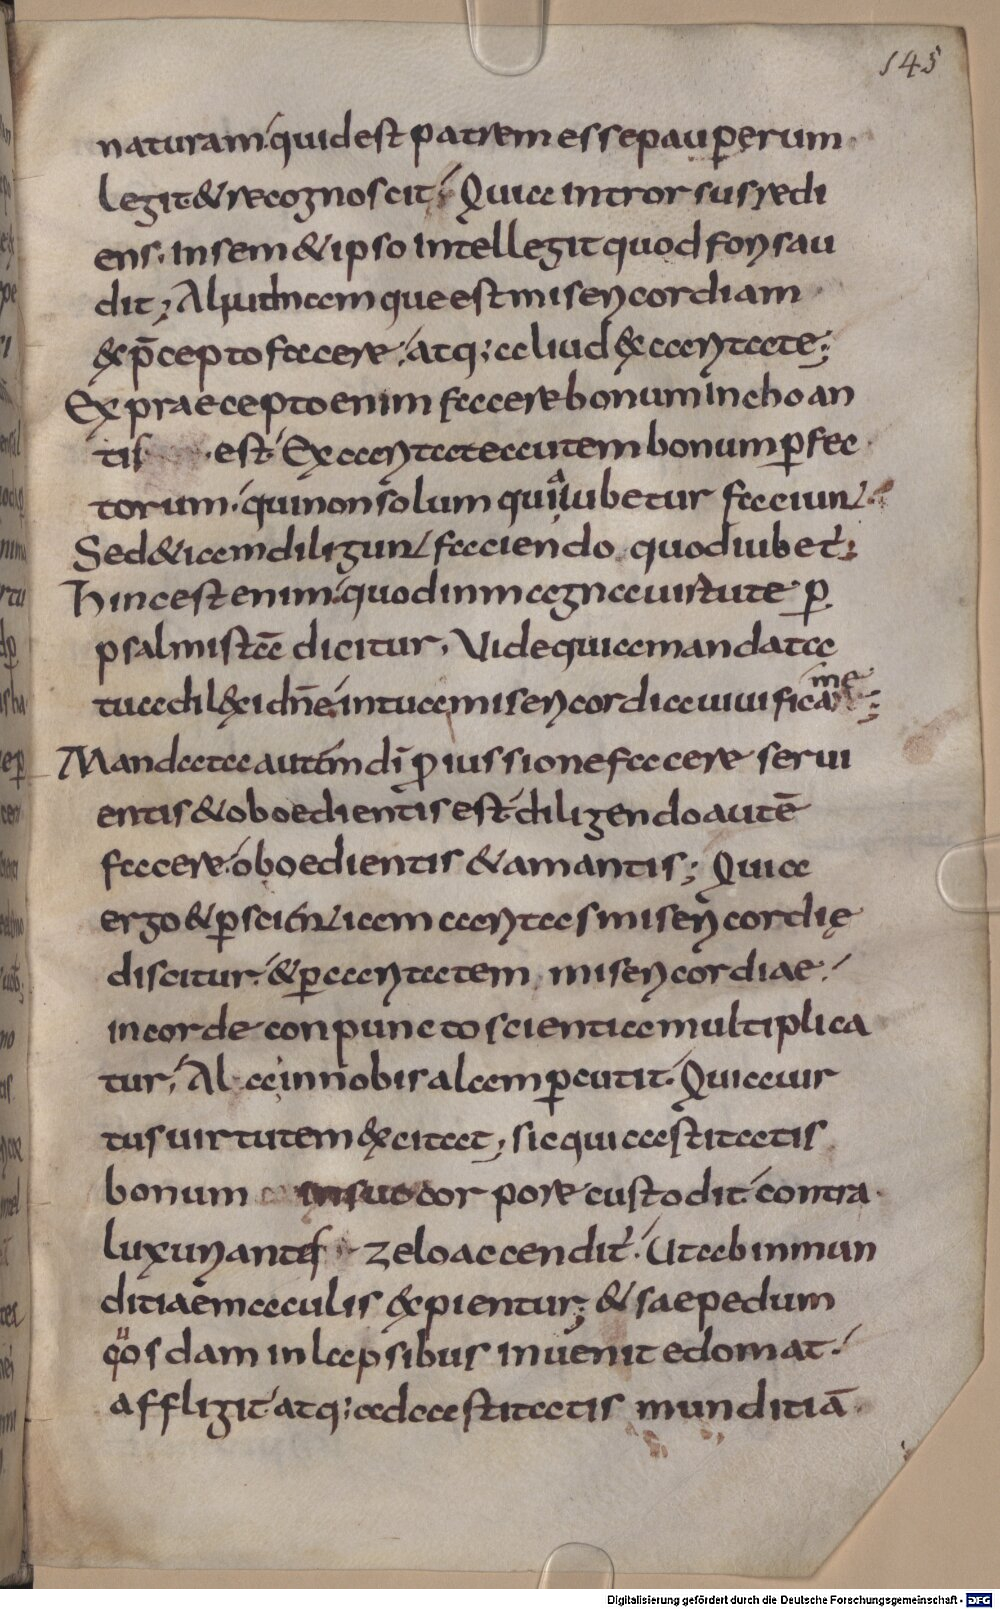 145
naturam quid est patrem esse pauperum
legit & recognoscit. Quia introrsus redi
ens. in sem& ipso intellegit quod foris au
dit; Aliud namque est misericordiam
ex p̄cepto facere. atq; aliud ex caritate;
Ex praecepto enim facere bonum inchoan
tis est. Ex caritate autem bonum ꝑfec
torum. qui non solum quia iubetur faciunt.
Sed & iam diligunt faciendo quod iubet;
Hinc est enim quod in magna uirtute ꝑ
psalmistā dicitur, Vide quia mandata
tua dilexi dn̄e in tua misericordia uiuifica me;
Mandata autem di ꝑ iussione facere serui
entis & oboedientis est. diligendo autē
facere. oboedientis & amantis; Quia
ergo & ꝑ scientiam caritas misericordię
discitur. & ꝑ caritatem misericordiae
in corde conpuncto scientia multiplica
tur, Ala in nobis alam ꝑcutit. Quia uir
tus uirtutem excitat, sic qui castitatis
bonum in suo corpore custodit contra
luxuriantes zelo accendit. Ut ab inmun
ditiae maculis expientur; & saepe dum
quosdam in lapsibus inuenit edomat.
affligit atq; ad castitatis munditiā
Digitalisierung gefördert durch die Deutsche Forschungsgemeinschaft - DFG